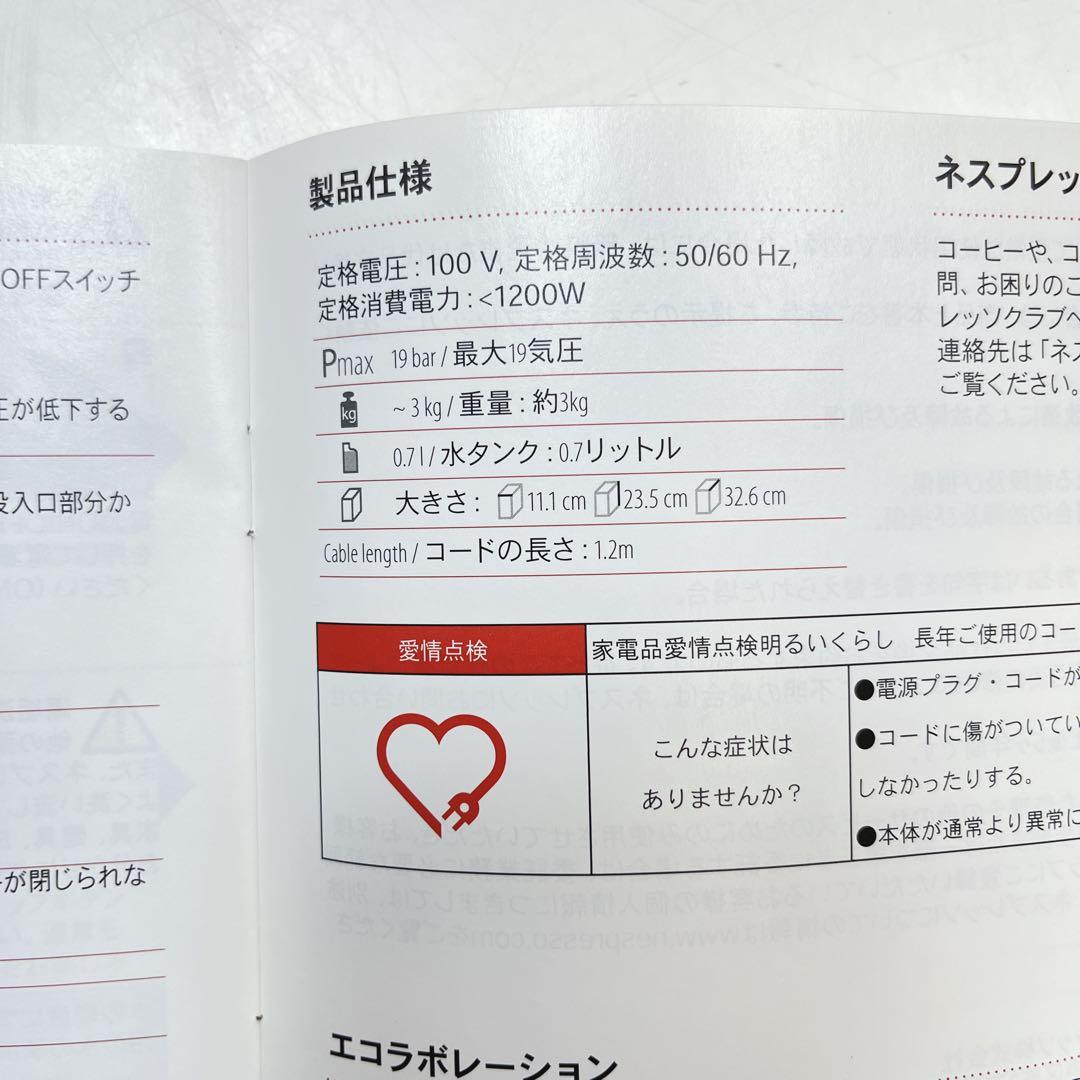 OFFスイッチ
圧が低下する
投入口部分か
が閉じられな
製品仕様
定格電圧：100 V, 定格周波数：50/60 Hz,
定格消費電力：<1200W
Pmax 19 bar / 最大19気圧
kg ~ 3 kg / 重量：約3kg
0.7 l / 水タンク：0.7リットル
大きさ： 11.1 cm 23.5 cm 32.6 cm
Cable length / コードの長さ：1.2m
愛情点検
家電品愛情点検明るいくらし 長年ご使用のコー
こんな症状は
ありませんか？
●電源プラグ・コードが
●コードに傷がついてい
しなかったりする。
●本体が通常より異常に
エコラボレーション
ネスプレッ
コーヒーや、コ
問、お困りのご
レッソクラブへ
連絡先は「ネス
ご覧ください。